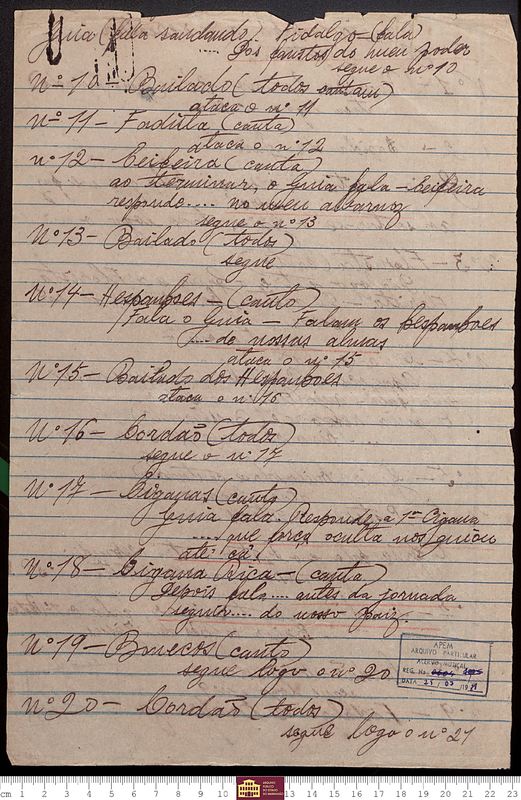 Guia (fala saudando). Fidalgo (fala)
.... dos faustos do meu poder
segue o nº 10
Nº 10 - Bailado (todos cantam)
ataca o nº 11
Nº 11 - Fadista (canta)
ataca o nº 12
nº 12 - Ceifeira (canta)
ao terminar, o Guia fala - Ceifeira
responde.... no meu albornoz
segue o nº 13
Nº 13 - Bailado (todos)
segue
Nº 14 - Hespanhoes - (canto)
Fala o Guia - Falam os Hespanhoes
.... de nossas almas
ataca o nº 15
Nº 15 - Bailado dos Hespanhoes
ataca o nº 16
Nº 16 - Cordão (todos)
segue o nº 17
Nº 17 - Ciganas (canto)
Guia fala. Responde a 1ª Cigana
.... que força oculta nos guiou
até cá!
Nº 18 - Cigana Rica - (canta)
Depois fala.... antes da jornada
seguir.... do nosso paiz.
Nº 19 - Bonecos (canto)
segue logo o nº 20
Nº 20 - Cordão (todos)
segue logo o nº 21
APEM
ARQUIVO PARTICULAR
ACERVO MUSICAL
REG. No
DATA
cm 1 2 3 4 5 6 7 8 9 10 11 12 13 14 15 16 17 18 19 20 21 22 23